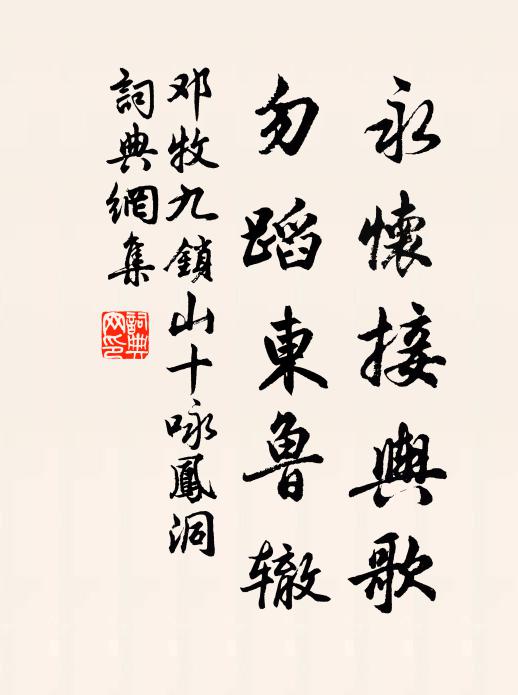 永懷接輿歌
勿蹈東魯辙
邓牧九鎖山十咏鳳洞
詞典網集
詞典
网印